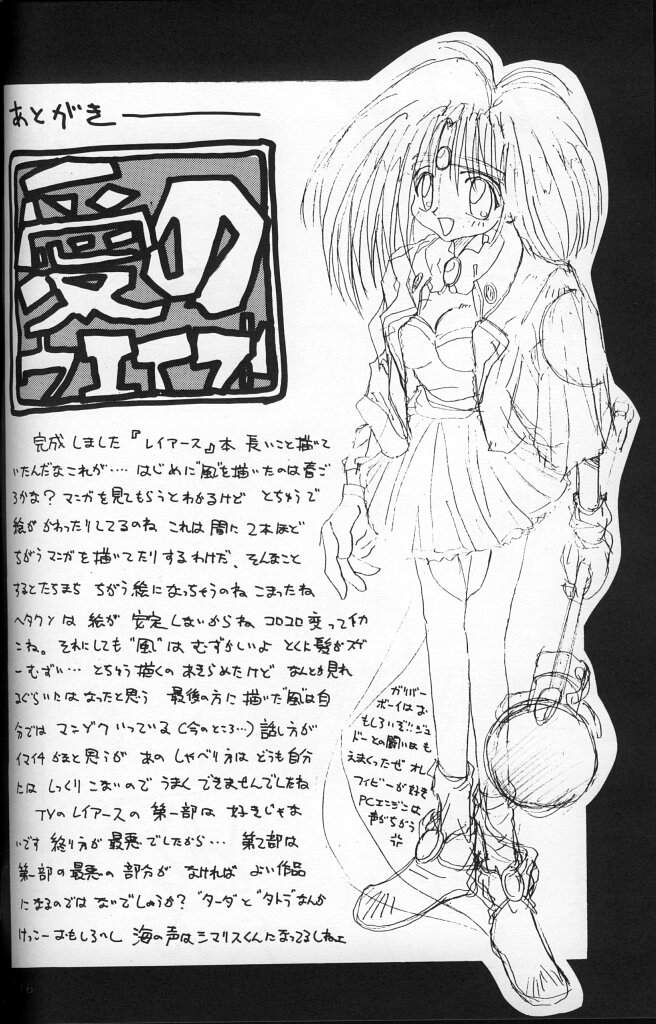 あとがき
愛の
完成しました『レイアース』本 長いこと描いて
いたんだなこれが‥‥ はじめに"風"を描いたのは春ご
ろかな？マンガを見てもらうとわかるけど とちゅうで
絵が かわったりしてるのね これは間に2本ほど
ちがうマンガを描いてたりするわけだ、そんなこと
するとたちまち ちがう絵になっちゃうのね こまったね
ヘタクソは 絵が 安定しないからね コロコロ変って
こね。それにしても"風"は むずかしいよ とくに髪がスゲ
ーむずい‥‥ とちゅう描くの あきらめたけど なんとか見れ
るぐらいにはなったと思う 最後の方に描いた"風"は自
分では マンゾク いっている（今のところ…）話し方が
イマイチかなと思うが あの しゃべり方は どうも自分
には しっくり こないので うまく できませんでしたね
TVのレイアースの 第一部は 好きじゃな
いです 終り方が最悪でしたから… 第2部は
第一部の最悪の 部分が なければ よい作品
になるのでは ないでしょうか？ "タータ"と"タトラ"なんか
けっこーおもしろいし 海の声はシマリスくんになってるしねェ
ガリバー
ボーイは‥お
もしろいぞ!!ジュ
ドーとの闘いはも
えまくったぜ オレ
フィービーが好き
PCエンジンは
声がちがう